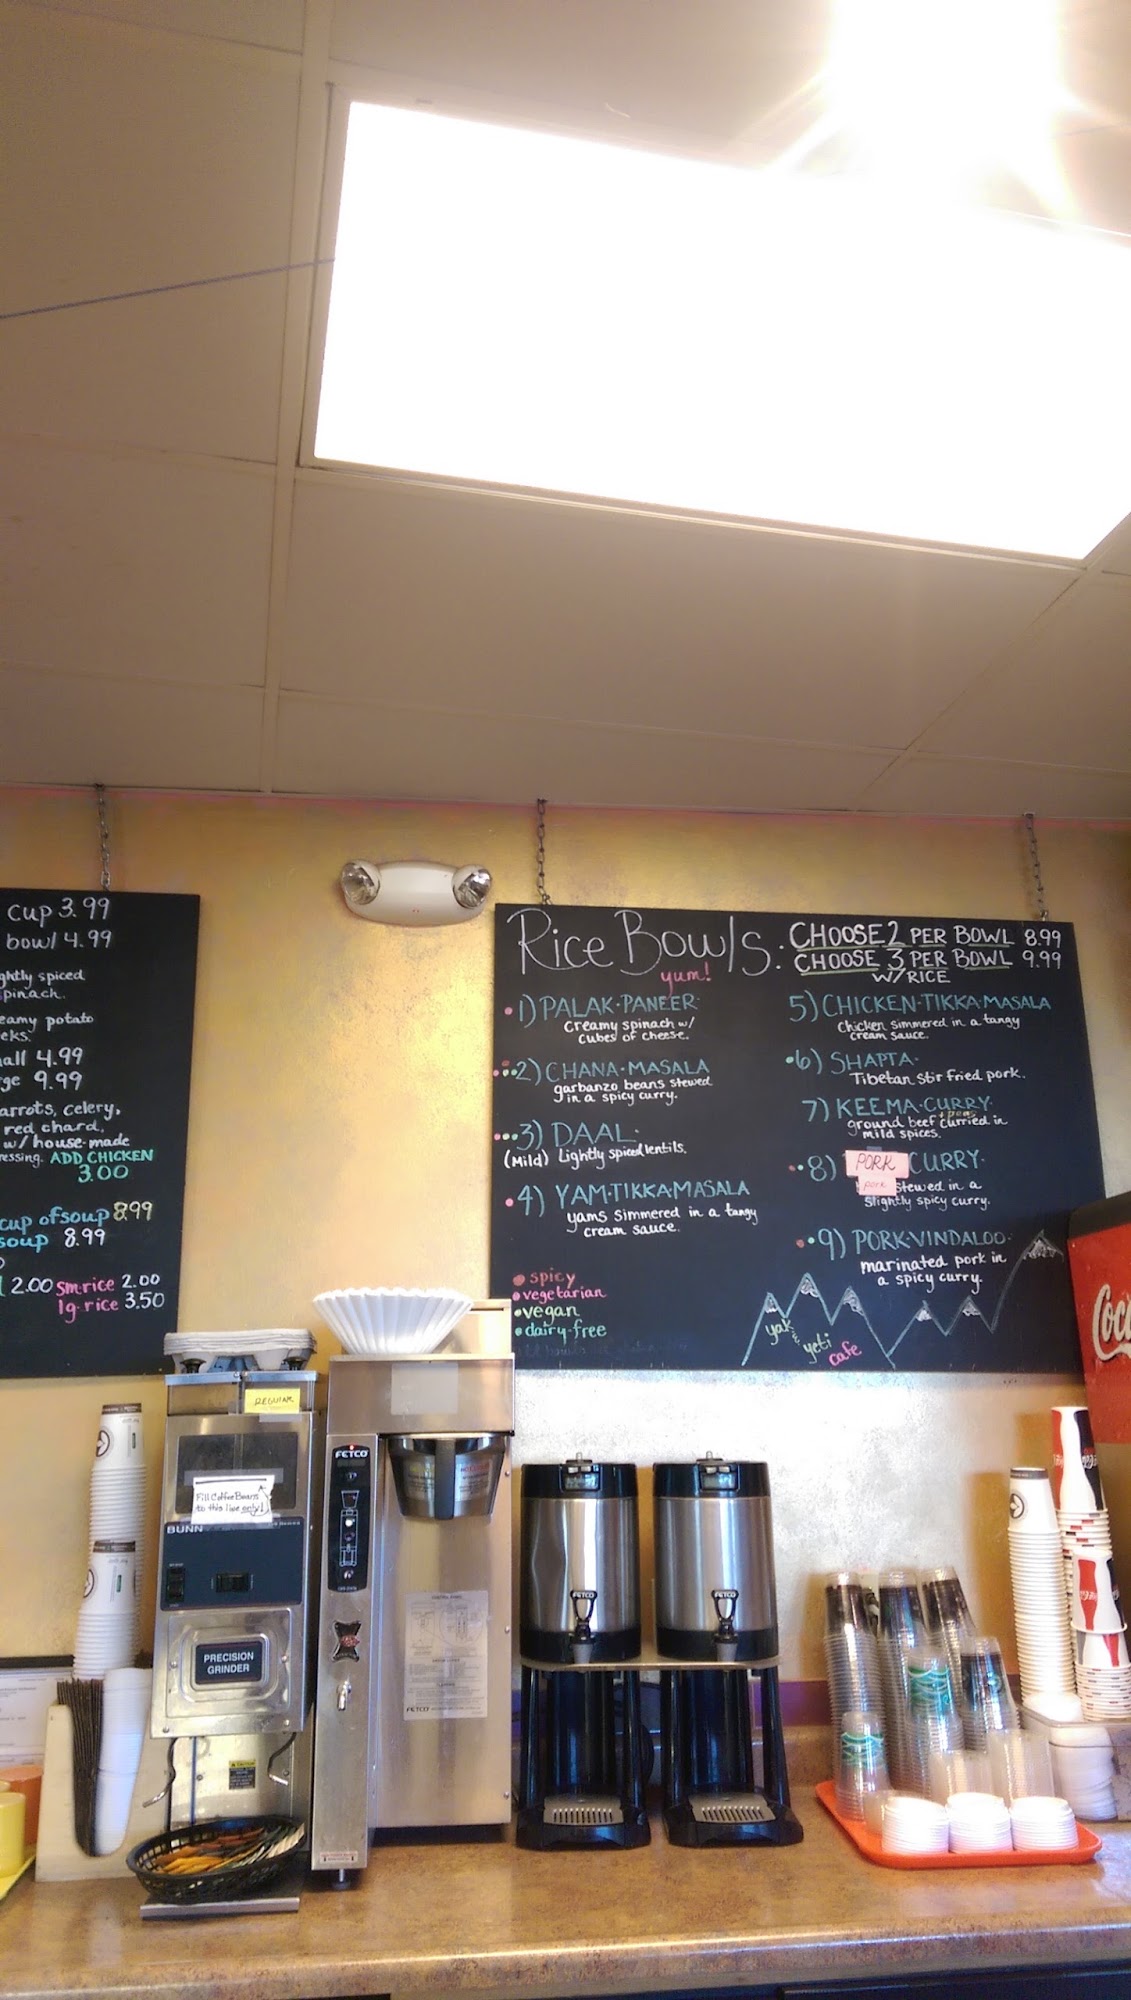 cup 3.99
bowl 4.99
ghtly spiced
pinach.
eamy potato
eks.
all 4.99
ge 9.99
arrots, celery,
red chard,
w/ house-made
ressing. ADD CHICKEN
3.00
cup of soup 8.99
soup 8.99
2.00 sm. rice 2.00
lg. rice 3.50
Rice Bowls:
yum!
CHOOSE 2 PER BOWL 8.99
CHOOSE 3 PER BOWL 9.99
W/ RICE
1) PALAK·PANEER·
Creamy spinach w/
cubes of cheese.
2) CHANA·MASALA
garbanzo beans stewed
in a spicy curry.
3) DAAL·
(Mild) Lightly spiced lentils.
4) YAM·TIKKA·MASALA
yams simmered in a tangy
cream sauce.
5) CHICKEN·TIKKA·MASALA
Chicken simmered in a tangy
cream sauce.
6) SHAPTA·
Tibetan stir fried pork.
7) KEEMA·CURRY·
+peas
ground beef curried in
mild spices.
8) PORK CURRY·
pork stewed in a
slightly spicy curry.
9) PORK·VINDALOO·
marinated pork in
a spicy curry.
spicy
vegetarian
vegan
dairy-free
yak &
yeti
cafe
REGULAR
Fill Coffee Beans
to this line only!
BUNN
PRECISION
GRINDER
FETCO
FETCO
FETCO
FETCO
Coc